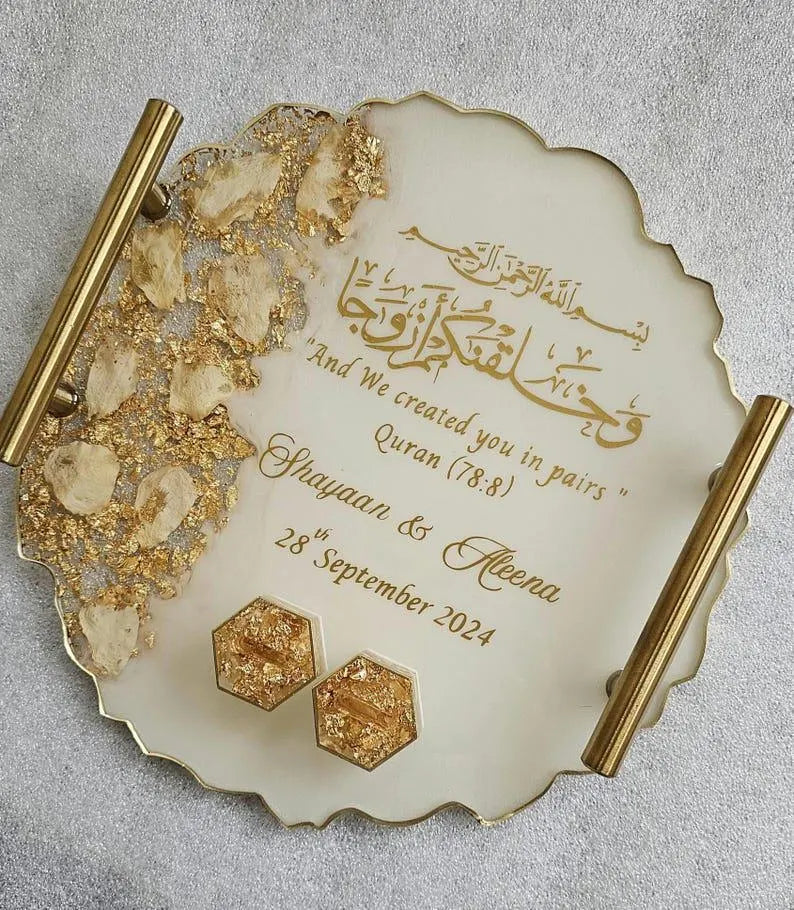 بِسْمِ اللَّهِ الرَّحْمٰنِ الرَّحِيمِ
وَخَلَقْنَٰكُمْ أَزْوَٰجًا
"And We created you in pairs "
Quran (78:8)
Shayaan & Aleena
28th September 2024